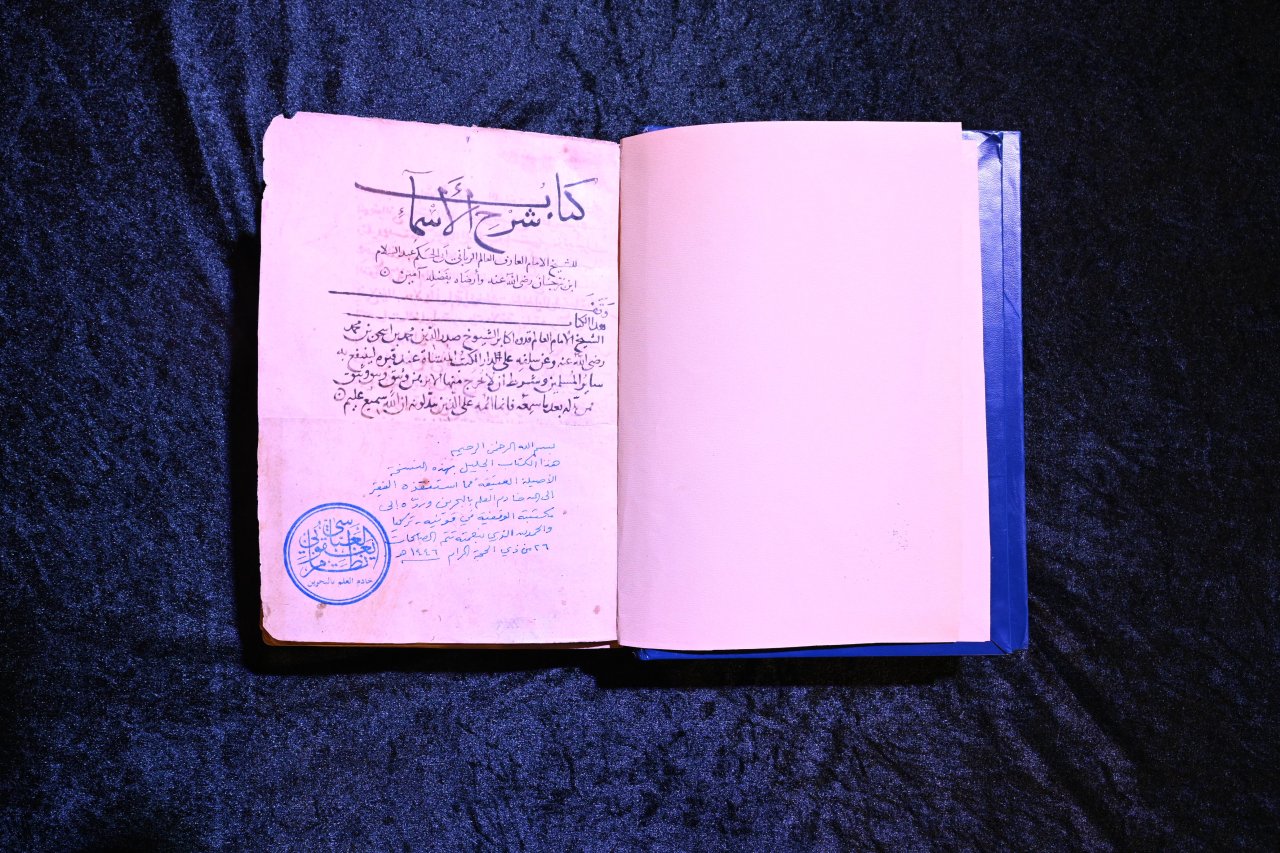 كتاب شرح الأسماء
للشيخ الامام العارف العالم الرباني أبي الحكم عبد السلام
ابن برجان رضي الله عنه وأرضاه بفضله آمين
وقف
هذا الكتاب
الشيخ الامام العالم قدوة اكابر الشيوخ صدر الدين محمد بن اسحق بن محمد
رضي الله عنه وعن سلفه على دار الكتب المنشاة عند قبره لينتفع به
سائر المسلمين وشرط أن لا يخرج منها الا برهن وثيق
بعد ما سمعه فانما اثمه على الذين يبدلونه ان الله سميع عليم
بسم الله الرحمن الرحيم
هذا الكتاب الجليل بهذه النسخة
الأصيلة العتيقة مما استنقذه الفقير
إلى الله خادم العلم بالبحرين وردّه إلى
مكتبته الوقفية في قونية - تركيا
والحمد لله الذي بنعمته تتم الصالحات
٢٦ من ذي الحجة الحرام ١٤٤٦ هـ
نظام يعقوبي العباسي
خادم العلم بالبحرين